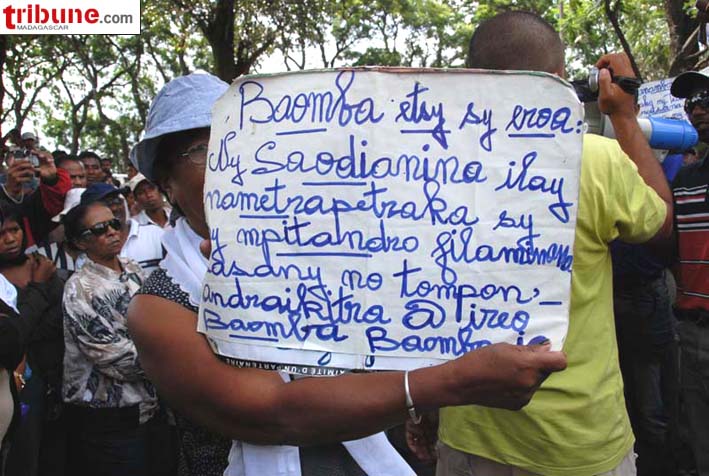 tribune.com
MADAGASCAR
Baomba etsy sy eroa:
Ny Saodianina ilay
nametrapetraka sy
y mpitandro filaminana
asany no tompon'_
andraikitra @ ireo
Baomba Baomba io
XIMITE D'UN PARTENAIRE